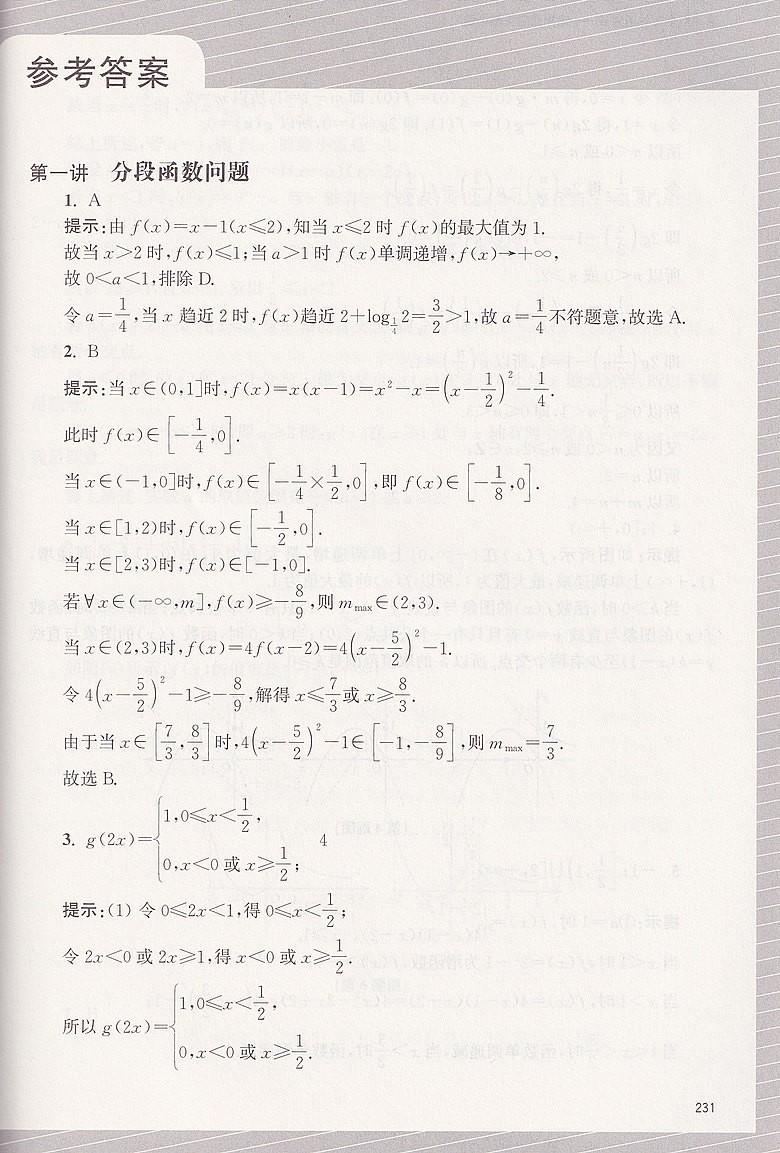 参考答案
第一讲 分段函数问题
1. A
提示:由 f(x)=x-1(x≤2),知当 x≤2 时 f(x)的最大值为 1.
故当 x>2 时,f(x)≤1;当 a>1 时 f(x)单调递增,f(x)→+∞,
故 0<a<1,排除 D.
令 a=1/4,当 x 趋近 2 时,f(x)趋近 2+log_{1/4}2=3/2>1,故 a=1/4不符题意,故选 A.
2. B
提示:当 x∈(0,1]时,f(x)=x(x-1)=x²-x=(x-1/2)²-1/4.
此时 f(x)∈[-1/4,0].
当 x∈(-1,0]时,f(x)∈[-1/4×1/2,0],即 f(x)∈[-1/8,0].
当 x∈[1,2)时,f(x)∈[-1/2,0].
当 x∈[2,3)时,f(x)∈[-1,0].
若∀x∈(-∞,m],f(x)≥-8/9,则 m_{max}∈(2,3).
当 x∈(2,3)时,f(x)=4f(x-2)=4(x-5/2)²-1.
令 4(x-5/2)²-1≥-8/9,解得 x≤7/3或 x≥8/3.
由于当 x∈[7/3,8/3]时,4(x-5/2)²-1∈[-1,-8/9],则 m_{max}=7/3.
故选 B.
3. g(2x)={1,0≤x<1/2, 0,x<0 或 x≥1/2; 4
提示:(1) 令 0≤2x<1,得 0≤x<1/2;
令 2x<0 或 2x≥1,得 x<0 或 x≥1/2.
所以 g(2x)={1,0≤x<1/2, 0,x<0 或 x≥1/2.
231